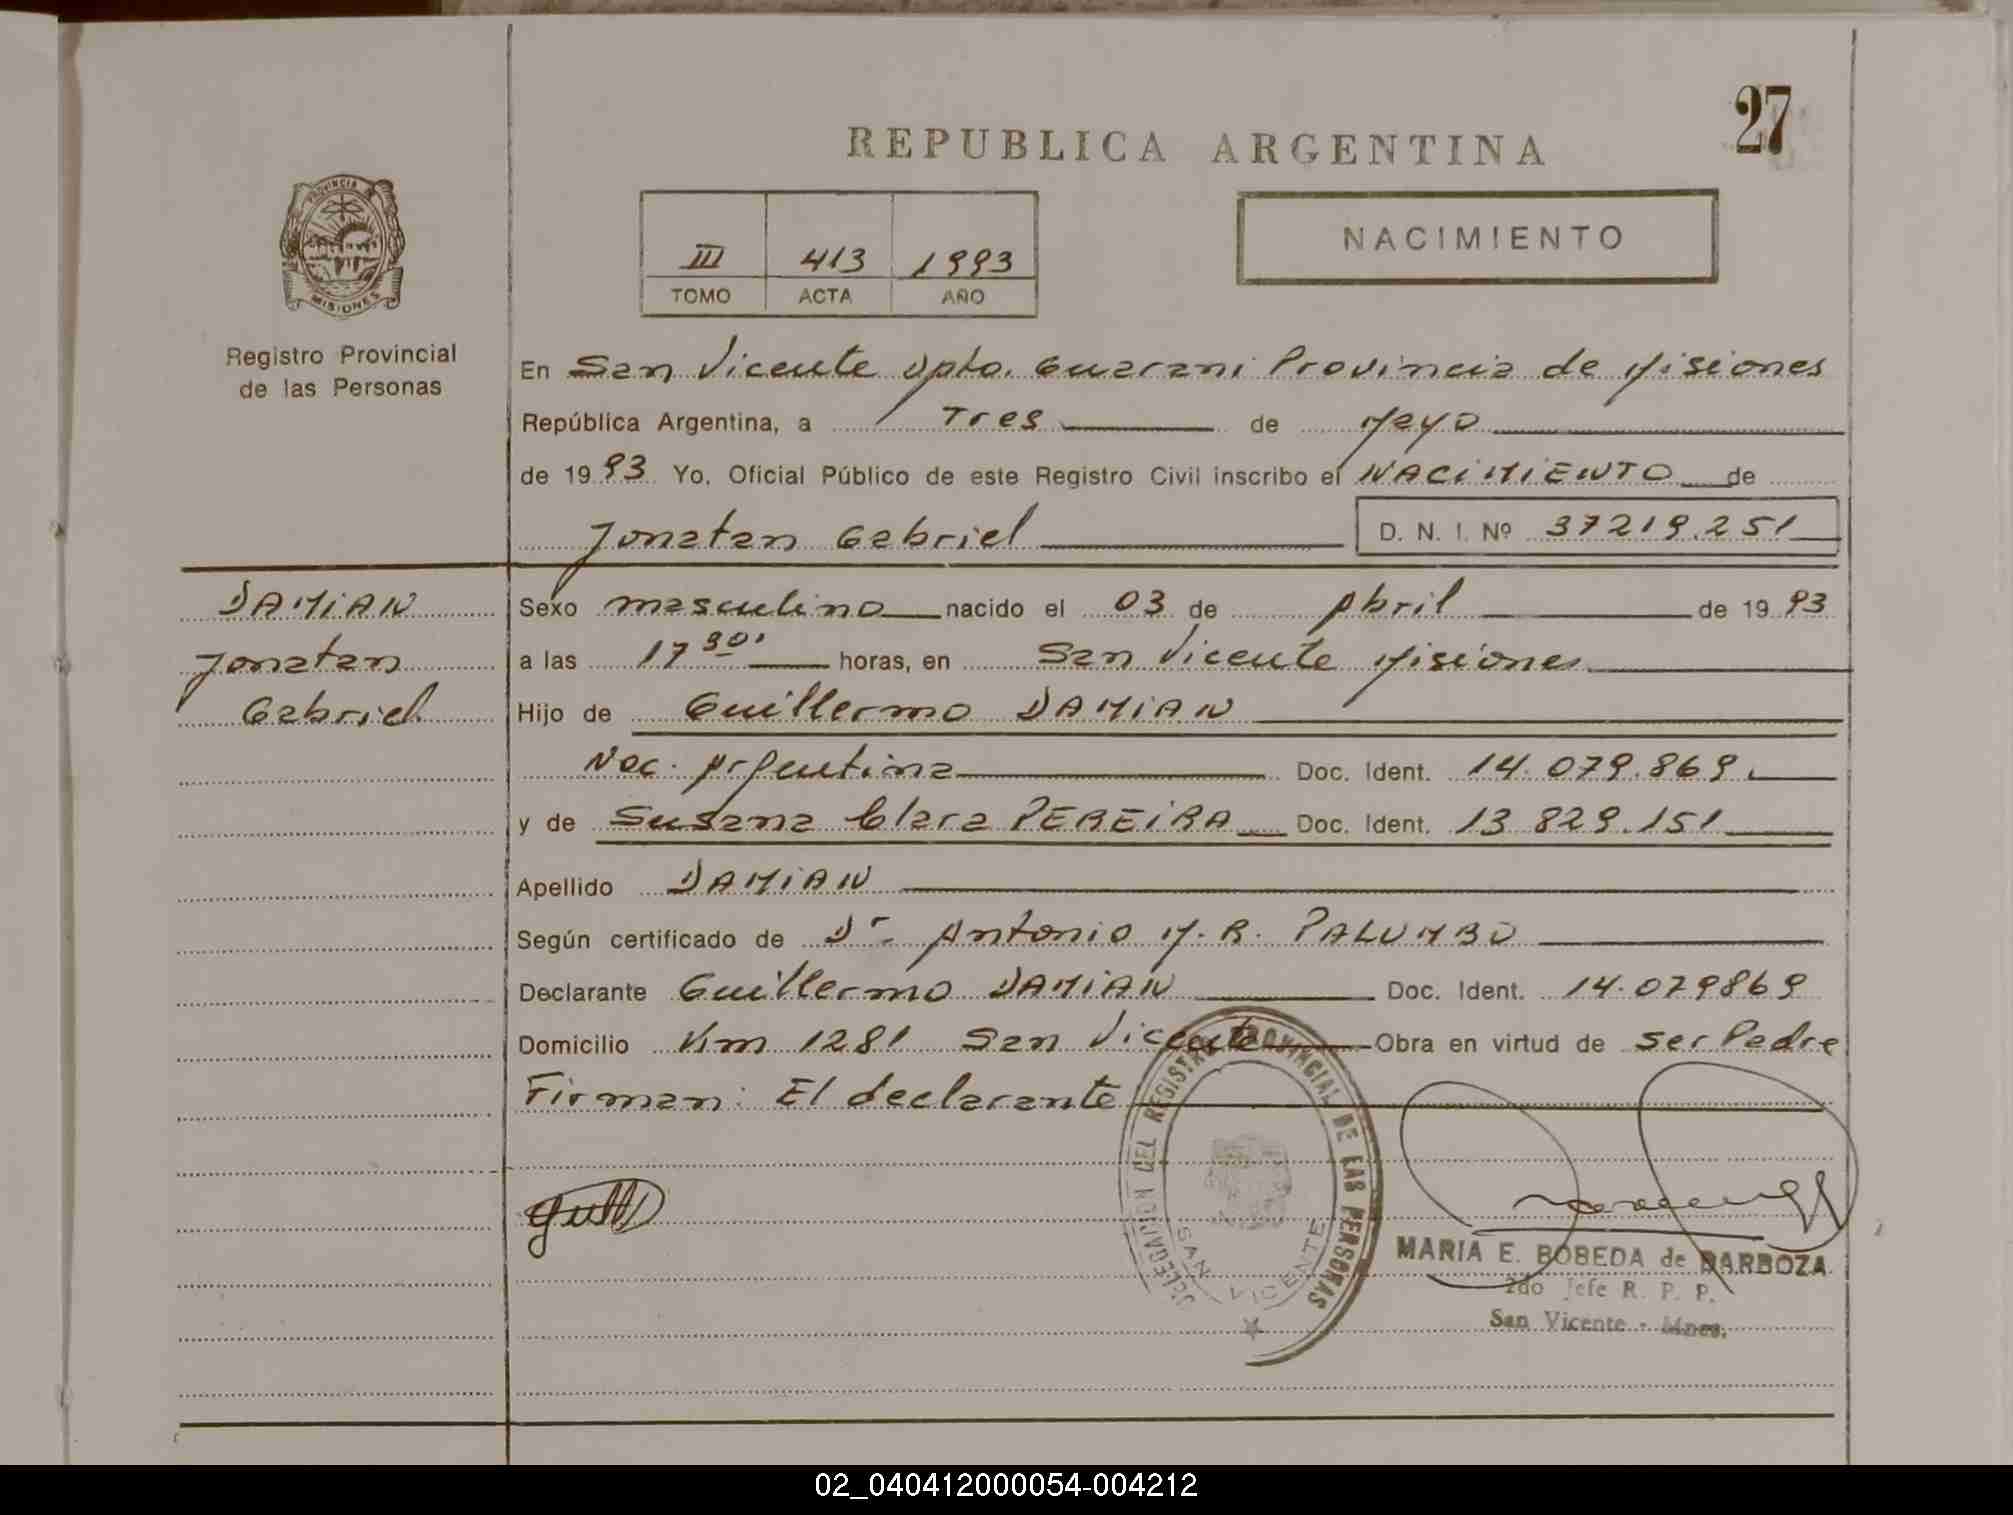 27
REPUBLICA ARGENTINA
PROVINCIA DE
MISIONES
III 413 1993
TOMO ACTA AÑO
NACIMIENTO
Registro Provincial
de las Personas
En San Vicente Dpto. Guarani Provincia de Misiones
República Argentina, a Tres de Mayo
de 1993 Yo, Oficial Público de este Registro Civil inscribo el NACIMIENTO de
Jonatan Gabriel D. N. I. Nº 37219.251
DAMIAN
Jonatan
Gabriel
Sexo masculino nacido el 03 de Abril de 1993
a las 17 30' horas, en San Vicente Misiones
Hijo de Guillermo DAMIAN
Nac. Argentina Doc. Ident. 14.079.869
y de Susana Clara PEREiRA Doc. Ident. 13 829.151
Apellido DAMIAN
Según certificado de Dr Antonio M. R. PALUMBO
Declarante Guillermo DAMIAN Doc. Ident. 14.079869
Domicilio Km 1281 San Vicente Obra en virtud de ser Padre
Firman: El declarante
DELEGACION DEL REGISTRO PROVINCIAL DE LAS PERSONAS
SAN VICENTE
MARIA E. BOBEDA de BARBOZA
2do Jefe R. P. P.
San Vicente - Mnes.
02_040412000054-004212